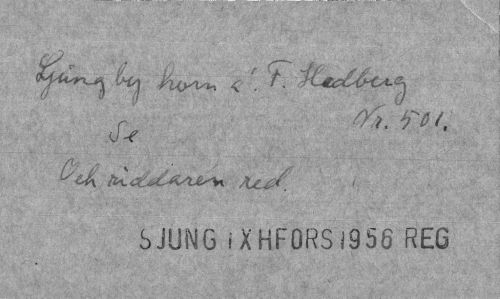 Ljungby horn a'. F. Hedberg
Nr. 501.
Se
Och riddaren red.
SJUNG IXHFORS 1956 REG